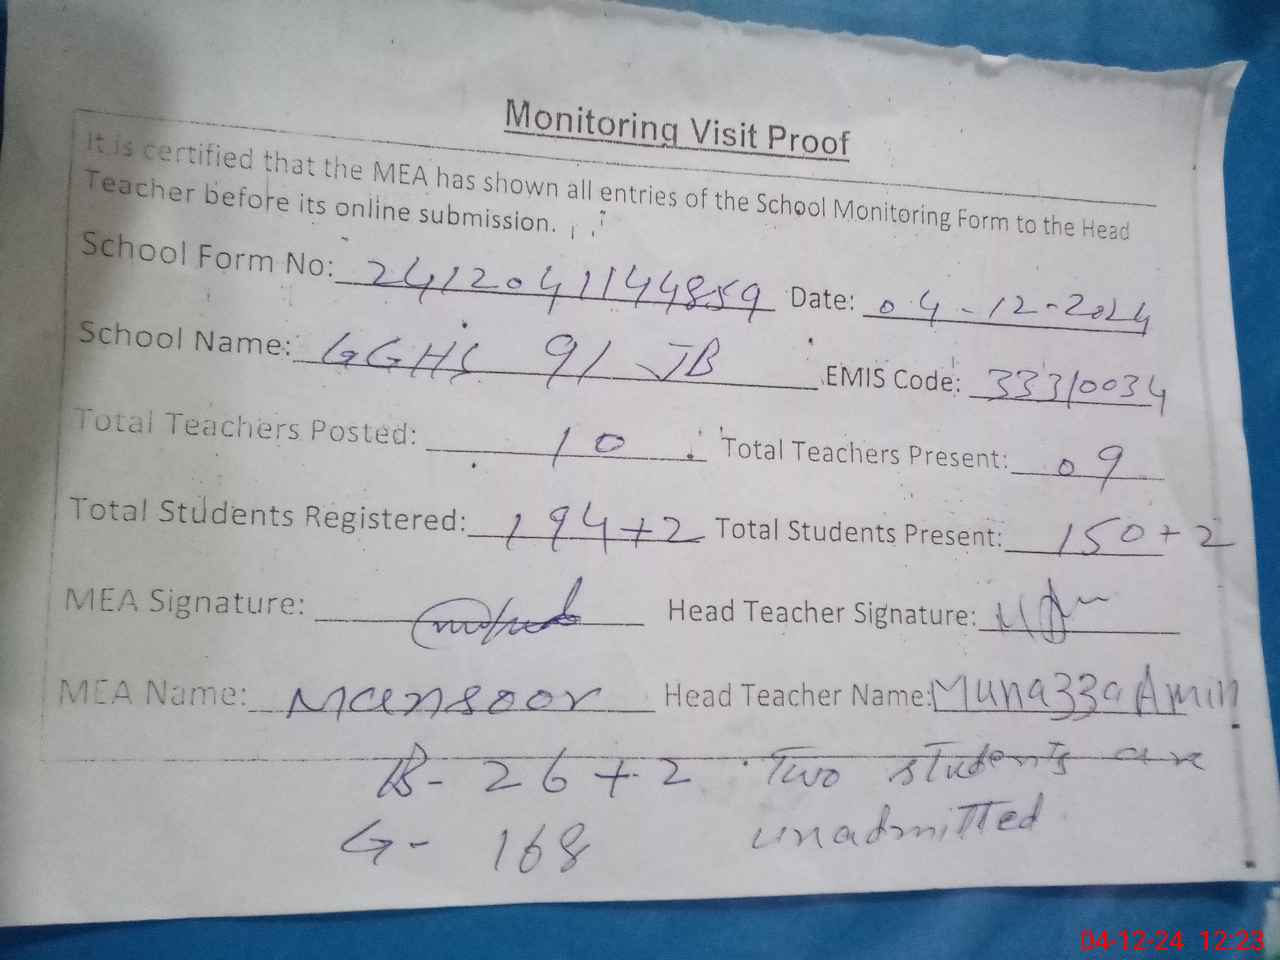 Monitoring Visit Proof
It is certified that the MEA has shown all entries of the School Monitoring Form to the Head
Teacher before its online submission.
School Form No: 2412041144859 Date: 04-12-2024
School Name: GGHS 91 JB EMIS Code: 33310034
Total Teachers Posted: 10 Total Teachers Present: 09
Total Students Registered: 194+2 Total Students Present: 150+2
MEA Signature: Head Teacher Signature:
MEA Name: Mansoor Head Teacher Name: Munazza Amin
B- 26+2 Two students are
G- 168 unadmitted
04-12-24 12:23